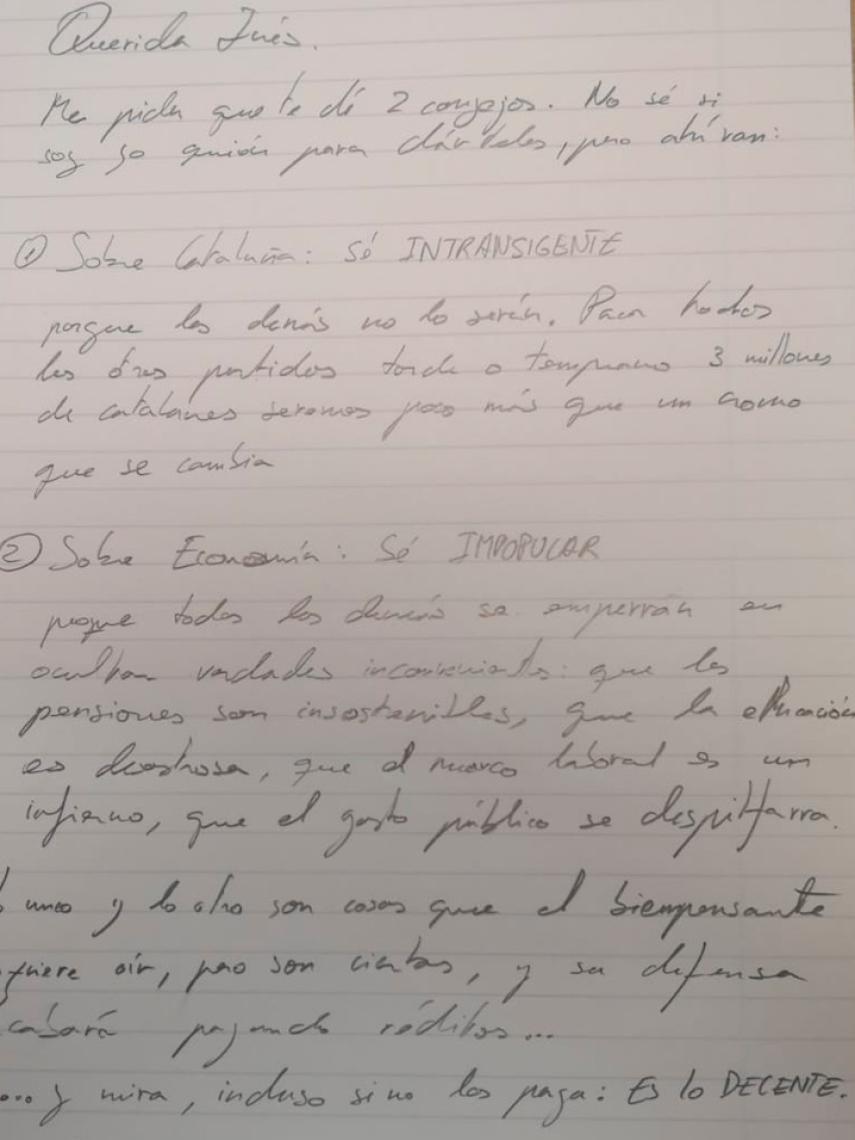 Querida Inés.
Me piden que te dé 2 consejos. No sé si
soy yo quién para dártelos, pero ahí van:
① Sobre Cataluña: Sé INTRANSIGENTE
porque los demás no lo serán. Para todos
los otros partidos tarde o temprano 3 millones
de catalanes seremos poco más que un cromo
que se cambia
② Sobre Economía: Sé IMPOPULAR
porque todos los demás se emperran en
ocultar verdades inconvenientes: que las
pensiones son insostenibles, que la educación
es desastrosa, que el marco laboral es un
infierno, que el gasto público se despilfarra.
uno y lo otro son cosas que el bienpensante
quiere oír, pero son ciertas, y su defensa
cabará pagando réditos...
... y mira, incluso si no los paga: Es lo DECENTE.